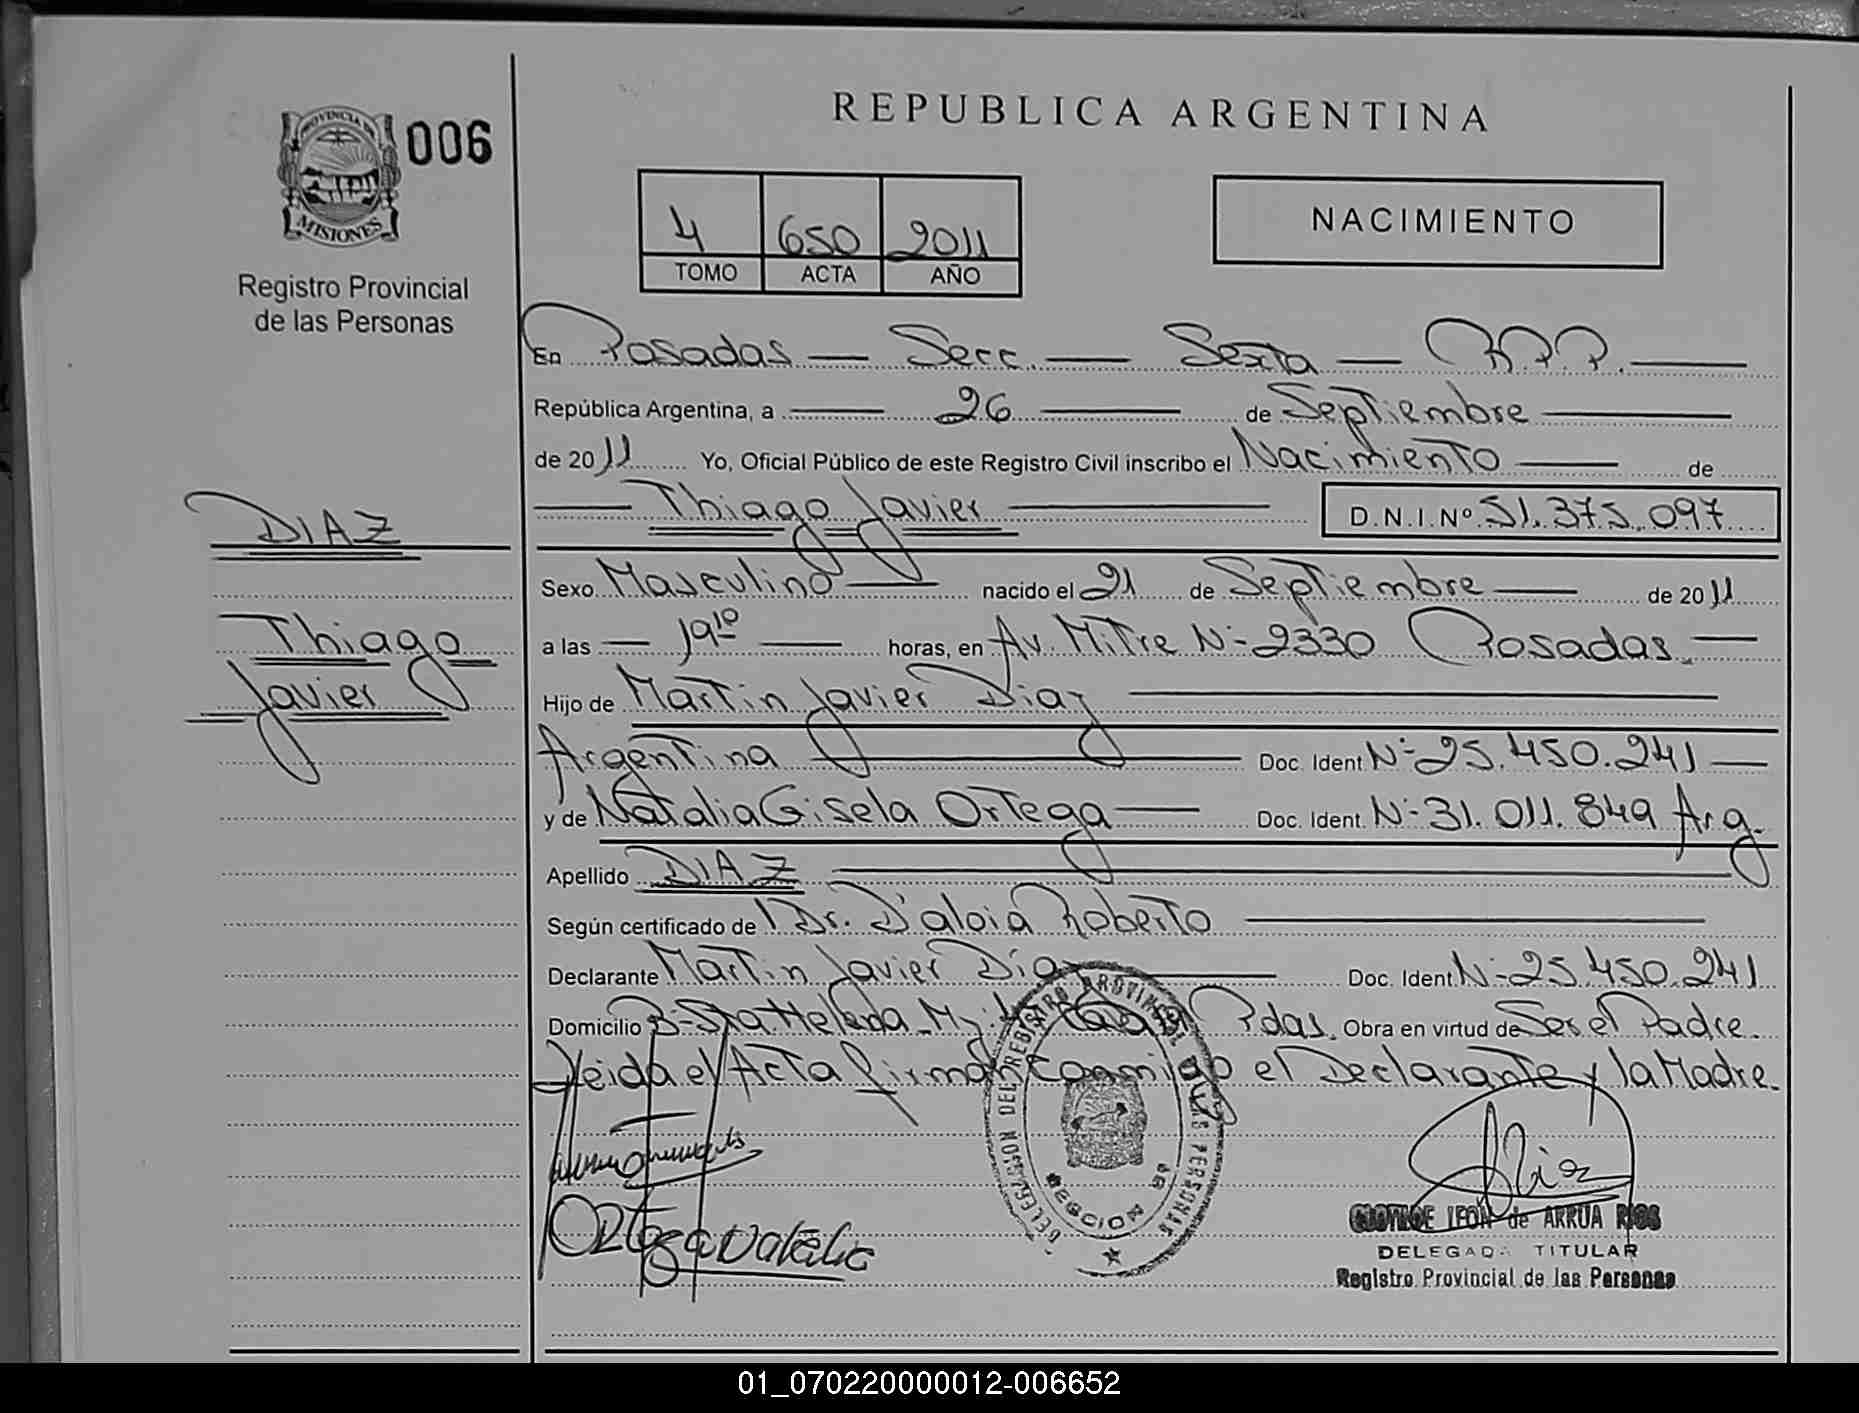 PROVINCIA DE
MISIONES
006
Registro Provincial
de las Personas
DIAZ
Thiago
Javier
REPUBLICA ARGENTINA
4 650 2011
TOMO ACTA AÑO
NACIMIENTO
En Posadas — Secc. — Sexta — R.P.P. —
República Argentina, a — 26 — de Septiembre —
de 2011 Yo, Oficial Público de este Registro Civil inscribo el Nacimiento — de
— Thiago Javier — D.N.I. Nº 51.375.097
Sexo Masculino — nacido el 21 de Septiembre — de 2011
a las — 19¹⁰ — horas, en Av. Mitre Nº 2330 Posadas. —
Hijo de Martin Javier Diaz —
Argentina — Doc. Ident Nº 25.450.241 —
y de Natalia Gisela Ortega — Doc. Ident. Nº 31.011.849 Arg.
Apellido DIAZ —
Según certificado de Dr. D'aloia Roberto —
Declarante Martin Javier Diaz — Doc. Ident Nº 25.450.241
Domicilio Bº Sta Helena Pdas. Obra en virtud de Ser el Padre.
Leida el Acta firman Conmigo el Declarante y la Madre.
DELEGACION DEL REGISTRO PROVINCIAL DE LAS PERSONAS
SECCION
Ortega Natalia
LEON de ARRUA RIOS
DELEGADA TITULAR
Registro Provincial de las Personas
01_070220000012-006652